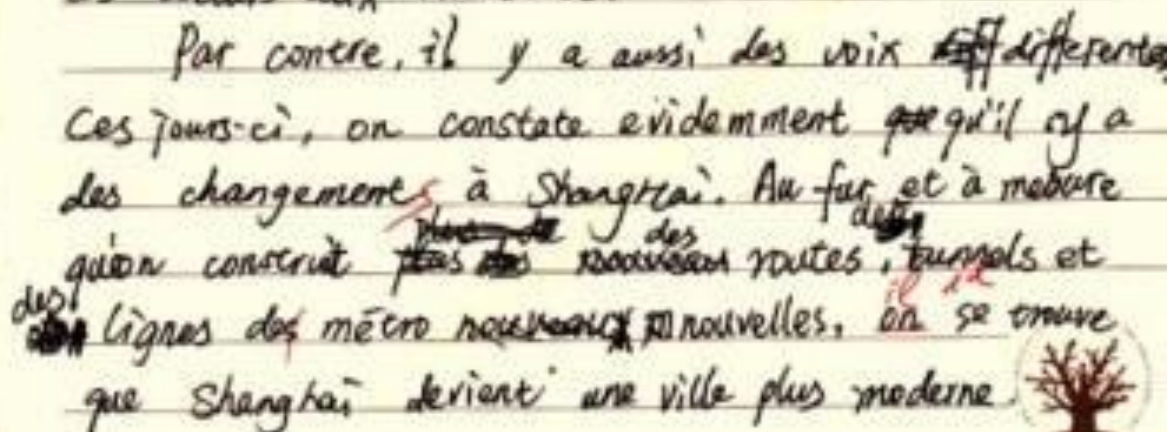 Par contre, il y a aussi des voix differentes
Ces jours-ci, on constate evidemment qu'il y a
des changements à Shanghai. Au fur et à mesure
qu'on construit des routes, des tunnels et
des lignes de métro nouvelles, on se trouve
que Shanghaï devient une ville plus moderne.